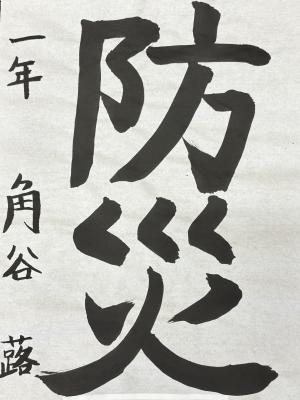 防災
一年 角谷 蕗